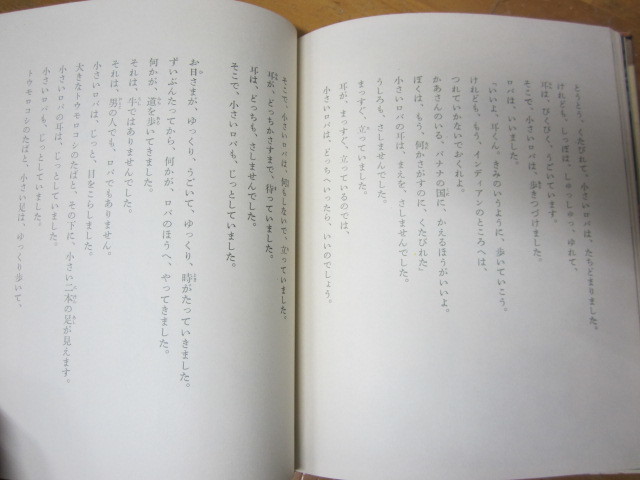 とうとう、くたびれて、小さいロバは、たちどまりました。
けれども、しっぽは、しゅっしゅっ、ゆれて、
耳は、ぴくぴく、うごいています。
そこで、小さいロバは、歩きつづけました。
ロバは、いいました。
「いいよ、耳くん。きみのいうように、歩いていこう。
けれども、もう、インディアンのところへは、
つれていかないでおくれよ。
かあさんのいる、バナナの国に、かえるほうがいいよ。
ぼくは、もう、何かさがすのに、くたびれた」
小さいロバの耳は、まえを、さしませんでした。
うしろも、さしませんでした。
まっすぐ、立っていました。
耳が、まっすぐ、立っているのでは、
小さいロバは、どっちへいったら、いいのでしょう。
そこで、小さいロバは、何もしないで、立っていました。
耳が、どっちかさすまで、待っていました。
耳は、どっちも、さしませんでした。
そこで、小さいロバも、じっとしていました。
お日さまが、ゆっくり、うごいて、ゆっくり、時がたっていきました。
ずいぶんたってから、何かが、ロバのほうへ、やってきました。
何かが、道を歩いてきました。
それは、牛ではありませんでした。
それは、男の人でも、ロバでもありません。
小さいロバは、じっと、目をこらしました。
大きなトウモロコシのたばと、その下に、小さい二本の足が見えます。
小さいロバの耳は、じっとしていました。
小さいロバも、じっとしていました。
トウモロコシのたばと、小さい足は、ゆっくり歩いて、